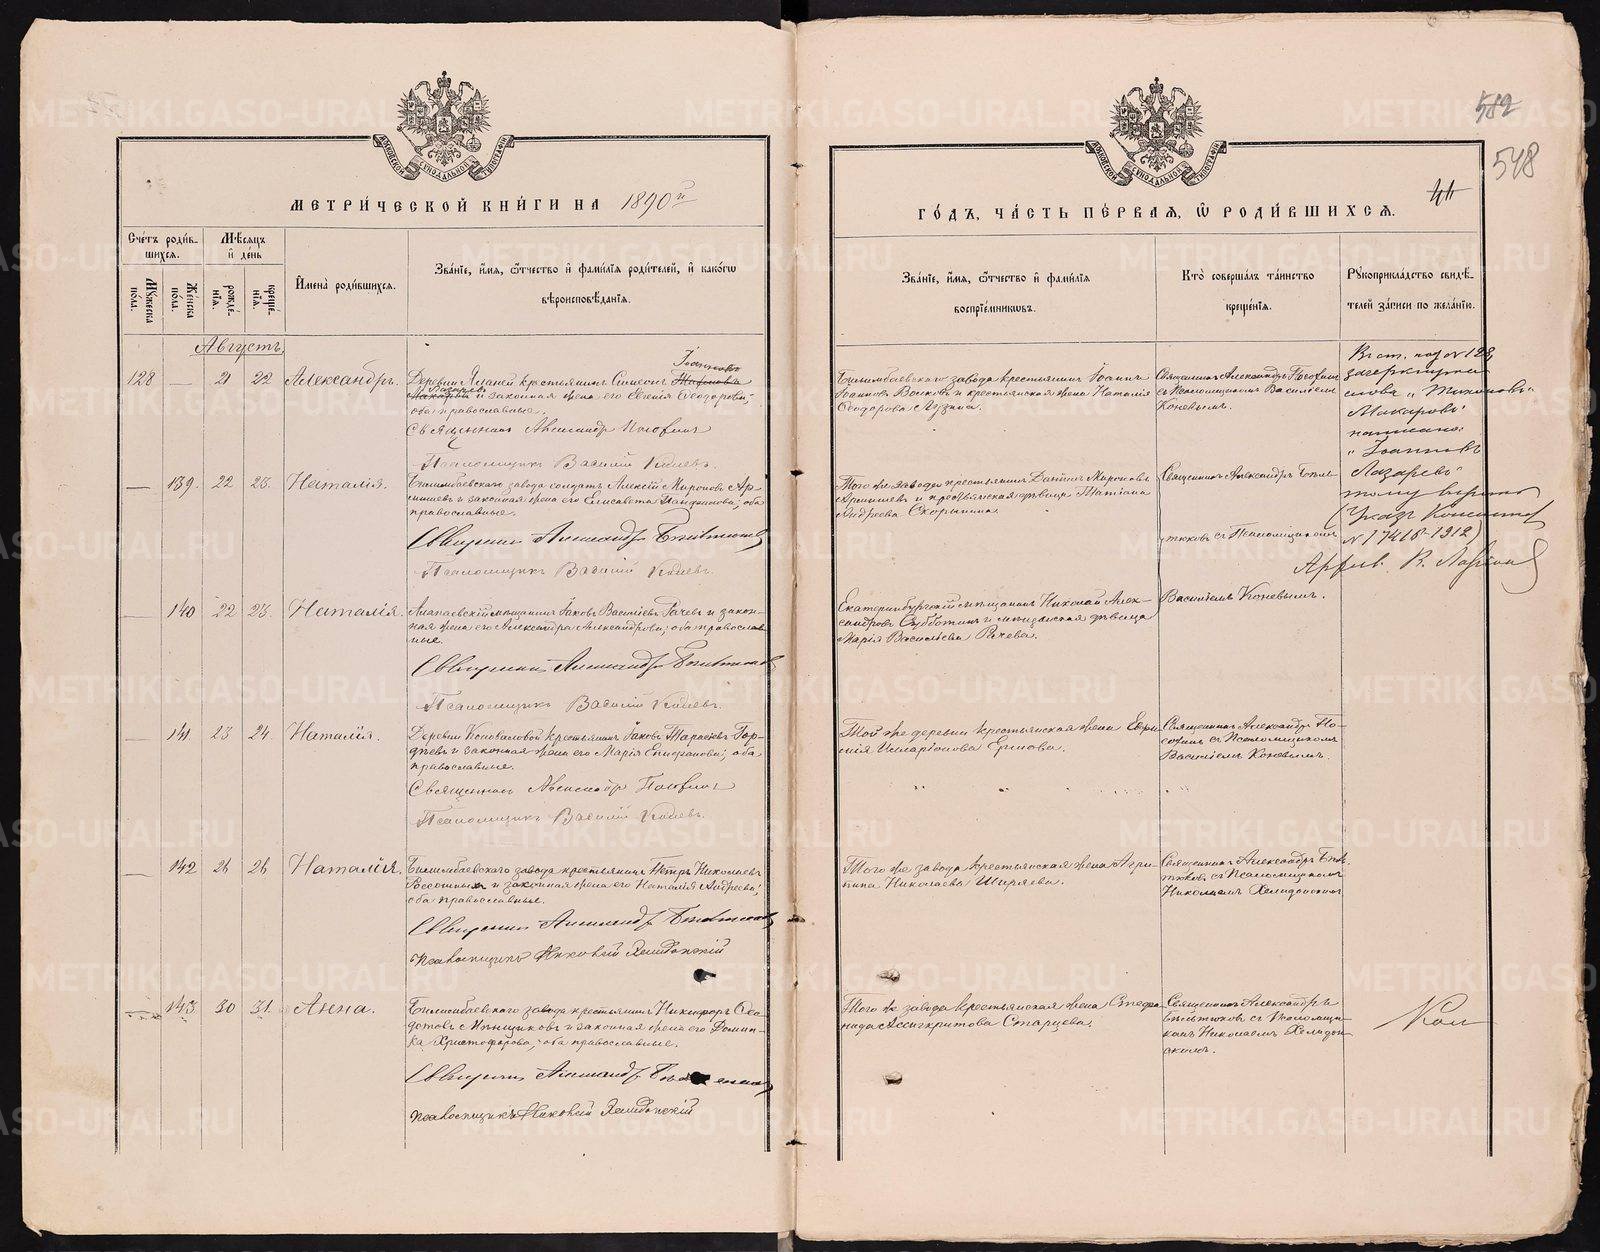 МЕТРИ́ЧЕСКОЙ КНИ́ГИ НА 1890й
Сче́тъ роди́в-
шихся.
Мѣ́сяцъ
и҆ де́нь
Мꙋ́жеска
по́ла.
Же́нска
по́ла.
рожде́-
нїѧ.
креще́-
нїѧ.
И҆мена̀ роди́вшихсѧ.
Зва́нїе, и҆́мѧ, ѻ҆́тчество и҆ фами́лїѧ роди́телей, и҆ како́гѡ
вѣроисповѣ́данїѧ.
Августъ
128 — 21 22 Александръ.
Іоанновъ
Деревни крестьянинъ Симеонъ
Лазаревъ
Макаровъ и законная жена его Евгенія Ѳеодорова;
оба православные.
Священникъ Александръ
Псаломщикъ Василій Коневъ.
— 139. 22 23. Наталія.
Билимбаевскаго завода солдатъ Алексій Мироновъ Ар-
и законная жена его Елисавета оба
православные.
Священникъ Александръ
Псаломщикъ Василій Коневъ.
— 140 22 23. Наталія.
Алапаевскій мѣщанинъ Іаковъ Василіевъ и закон-
ная жена его Александра Александрова; оба православ-
ные.
Священникъ Александръ
Псаломщикъ Василій Коневъ.
— 141 23 24 Наталія.
Деревни Коноваловой крестьянинъ Іаковъ Тарасіевъ Гор-
дѣевъ и законная жена его Марія Епифанова; оба
православные.
Священникъ Александръ
Псаломщикъ Василій Коневъ.
— 142 26 26 Наталія.
Билимбаевскаго завода крестьянинъ Петръ Николаевъ
и законная жена его Наталія Андреева;
оба православные.
Священникъ Александръ
Псаломщикъ Николай Хелидонскій
— 143 30 31. Анна.
Билимбаевскаго завода крестьянинъ Никифоръ Ѳео-
дотовъ и законная жена его Домни-
ка Христофорова, оба православные.
Священникъ Александръ
Псаломщикъ Николай Хелидонскій
582
548
44
ГО́ДЪ, ЧА́СТЬ ПЕ́РВАЯ, Ѡ҆ РОДИ́ВШИХСЯ.
Зва́нїе, и҆́мѧ, ѻ҆́тчество и҆ фами́лїѧ
воспрїе́мникѡвъ.
Кто̀ соверша́лъ та́инство
креще́нїѧ.
Рꙋкоприкла́дство свидѣ́-
телей за́писи по жела́нїю.
Билимбаевскаго завода крестьянинъ Іоаннъ
Іоанновъ Волковъ и крестьянская жена Наталія
Ѳеодорова
Священникъ Александръ
съ Псаломщикомъ Василіемъ
Коневымъ.
Въ ст. под № 128
зачеркнуты
слова „Тихоновъ"
Макаровъ
написано:
„Іоанновъ
Лазаревъ"
тому верить
(Указъ Консисторіи
№ 17415-1912)
Того же завода крестьянинъ Даніилъ Мироновъ
и крестьянская дѣвица Татіана
Андреева Скорынина.
Священникъ Александръ
съ Псаломщикомъ
Екатеринбургскій мѣщанинъ Николай Алек-
сандровъ Субботинъ и мѣщанская дѣвица
Марія Васильева
Василіемъ Коневымъ.
Той же деревни крестьянская жена Евфи-
мія Иларіонова
Священникъ Александръ
съ Псаломщикомъ
Василіемъ Коневымъ.
Того же завода крестьянская жена Агри-
пина Николаева Ширяева.
Священникъ Александръ
съ Псаломщикомъ
Николаемъ Хелидонскимъ
Того же завода крестьянская жена Стефа-
нида Ассигкритова Старцева.
Священникъ Александръ
съ Псаломщи-
комъ Николаемъ Хелидон-
скимъ.